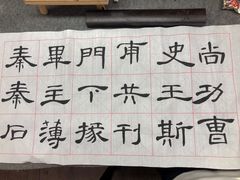 尚功曹
史王斯
甫共刊
門下掾
畢主薄
秦秦石